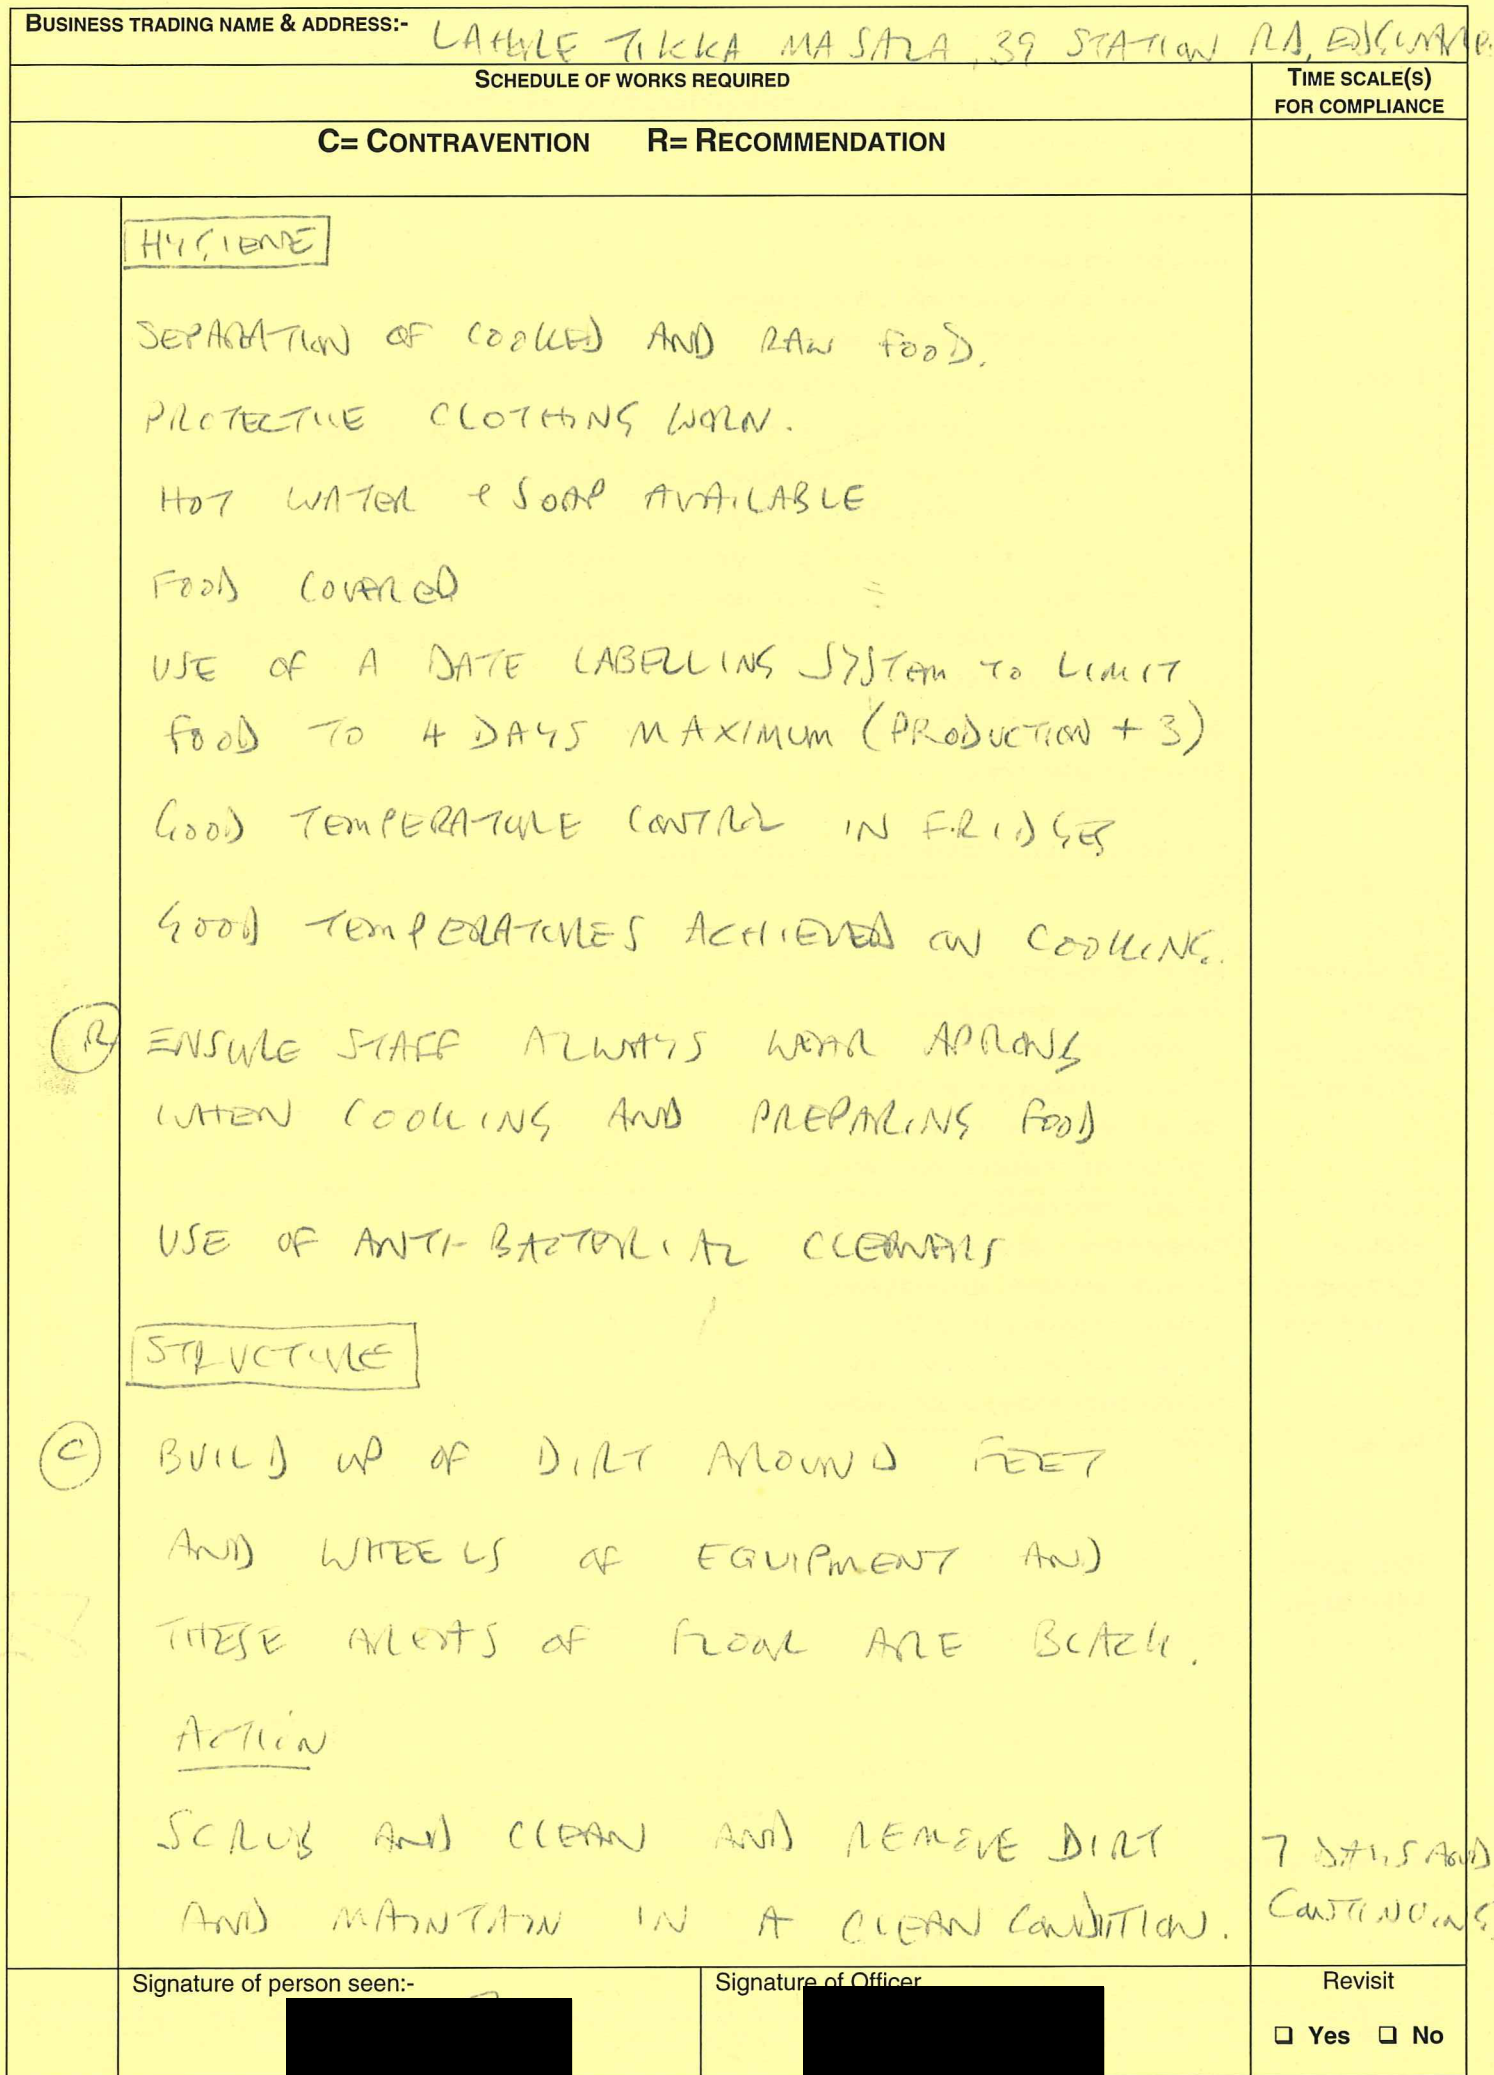 BUSINESS TRADING NAME & ADDRESS:- LAHORE TIKKA MASALA, 39 STATION RD, EDGWARE
SCHEDULE OF WORKS REQUIRED
TIME SCALE(S)
FOR COMPLIANCE
C= CONTRAVENTION R= RECOMMENDATION
HYGIENE
SEPARATION OF COOKED AND RAW FOOD.
PROTECTIVE CLOTHING WORN.
HOT WATER & SOAP AVAILABLE
FOOD COVERED
USE OF A DATE LABELLING SYSTEM TO LIMIT
FOOD TO 4 DAYS MAXIMUM (PRODUCTION + 3)
GOOD TEMPERATURE CONTROL IN FRIDGES
GOOD TEMPERATURES ACHIEVED ON COOKING.
R ENSURE STAFF ALWAYS WEAR APRONS
WHEN COOKING AND PREPARING FOOD
USE OF ANTI-BACTERIAL CLEANERS
STRUCTURE
C BUILD UP OF DIRT AROUND FEET
AND WHEELS OF EQUIPMENT AND
THESE AREAS OF FLOOR ARE BLACK.
ACTION
SCRUB AND CLEAN AND REMOVE DIRT 7 DAYS AND
AND MAINTAIN IN A CLEAN CONDITION. CONTINUING
Signature of person seen:- Signature of Officer Revisit
❑ Yes ❑ No